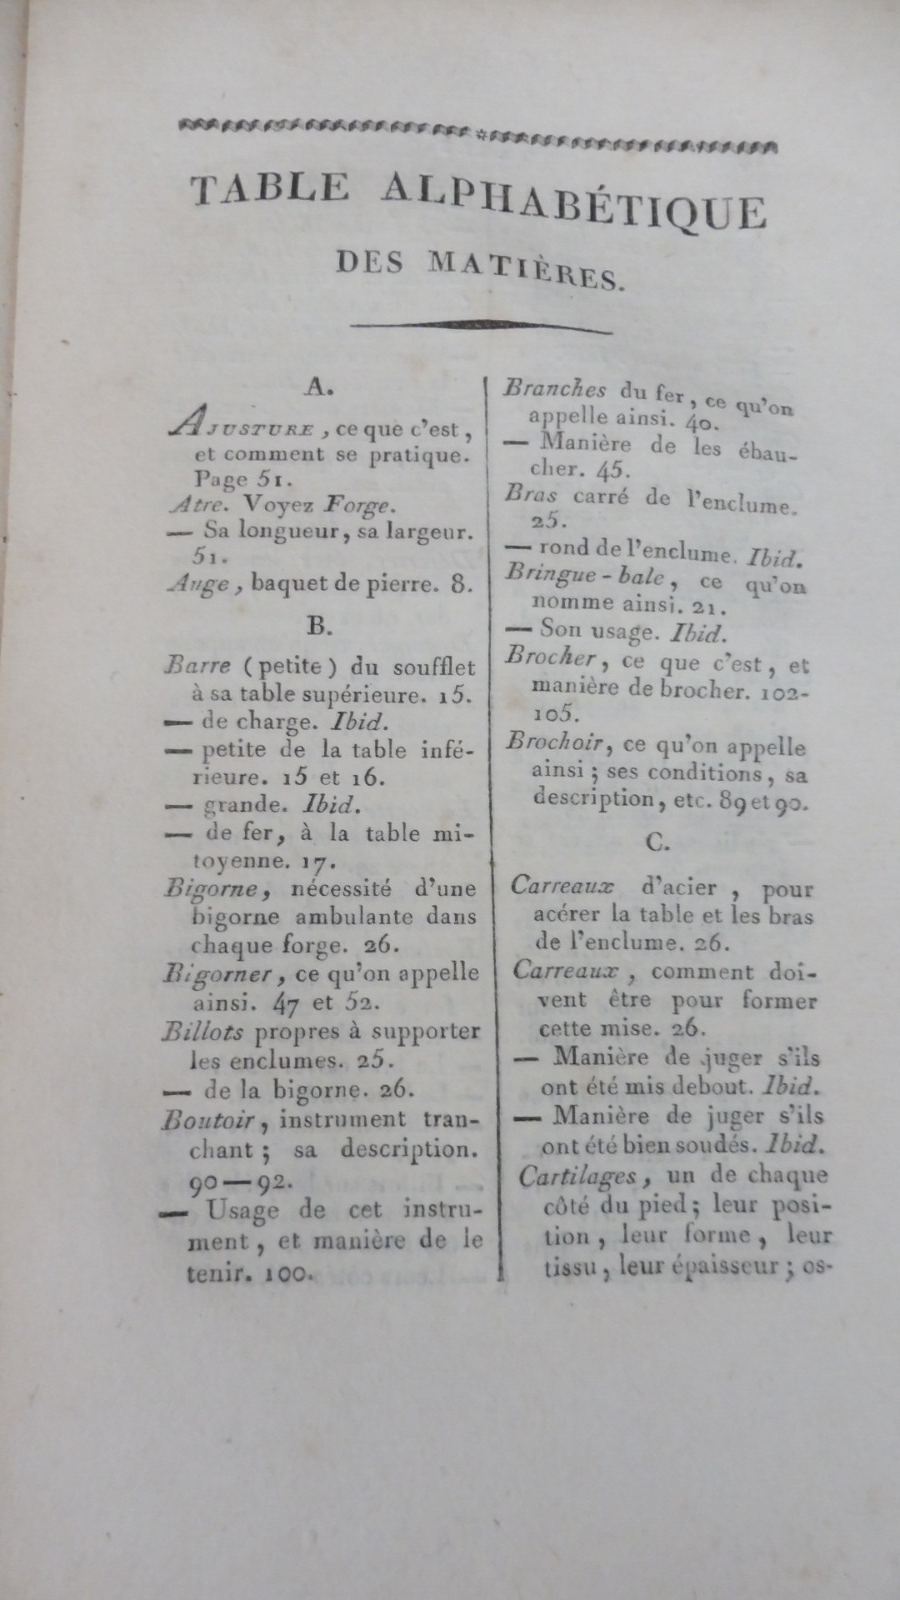 TABLE ALPHABÉTIQUE
DES MATIÈRES.
A.
AJUSTURE, ce que c'est,
et comment se pratique.
Page 51.
Atre. Voyez Forge.
— Sa longueur, sa largeur.
51.
Auge, baquet de pierre. 8.
B.
Barre (petite) du soufflet
à sa table supérieure. 15.
— de charge. Ibid.
— petite de la table infé-
rieure. 15 et 16.
— grande. Ibid.
— de fer, à la table mi-
toyenne. 17.
Bigorne, nécessité d'une
bigorne ambulante dans
chaque forge. 26.
Bigorner, ce qu'on appelle
ainsi. 47 et 52.
Billots propres à supporter
les enclumes. 25.
— de la bigorne. 26.
Boutoir, instrument tran-
chant; sa description.
90—92.
— Usage de cet instru-
ment, et manière de le
tenir. 100.
Branches du fer, ce qu'on
appelle ainsi. 40.
— Manière de les ébau-
cher. 45.
Bras carré de l'enclume.
25.
— rond de l'enclume. Ibid.
Bringue-bale, ce qu'on
nomme ainsi. 21.
— Son usage. Ibid.
Brocher, ce que c'est, et
manière de brocher. 102-
105.
Brochoir, ce qu'on appelle
ainsi; ses conditions, sa
description, etc. 89 et 90.
C.
Carreaux d'acier, pour
acérer la table et les bras
de l'enclume. 26.
Carreaux, comment doi-
vent être pour former
cette mise. 26.
— Manière de juger s'ils
ont été mis debout. Ibid.
— Manière de juger s'ils
ont été bien soudés. Ibid.
Cartilages, un de chaque
côté du pied; leur posi-
tion, leur forme, leur
tissu, leur épaisseur; os-